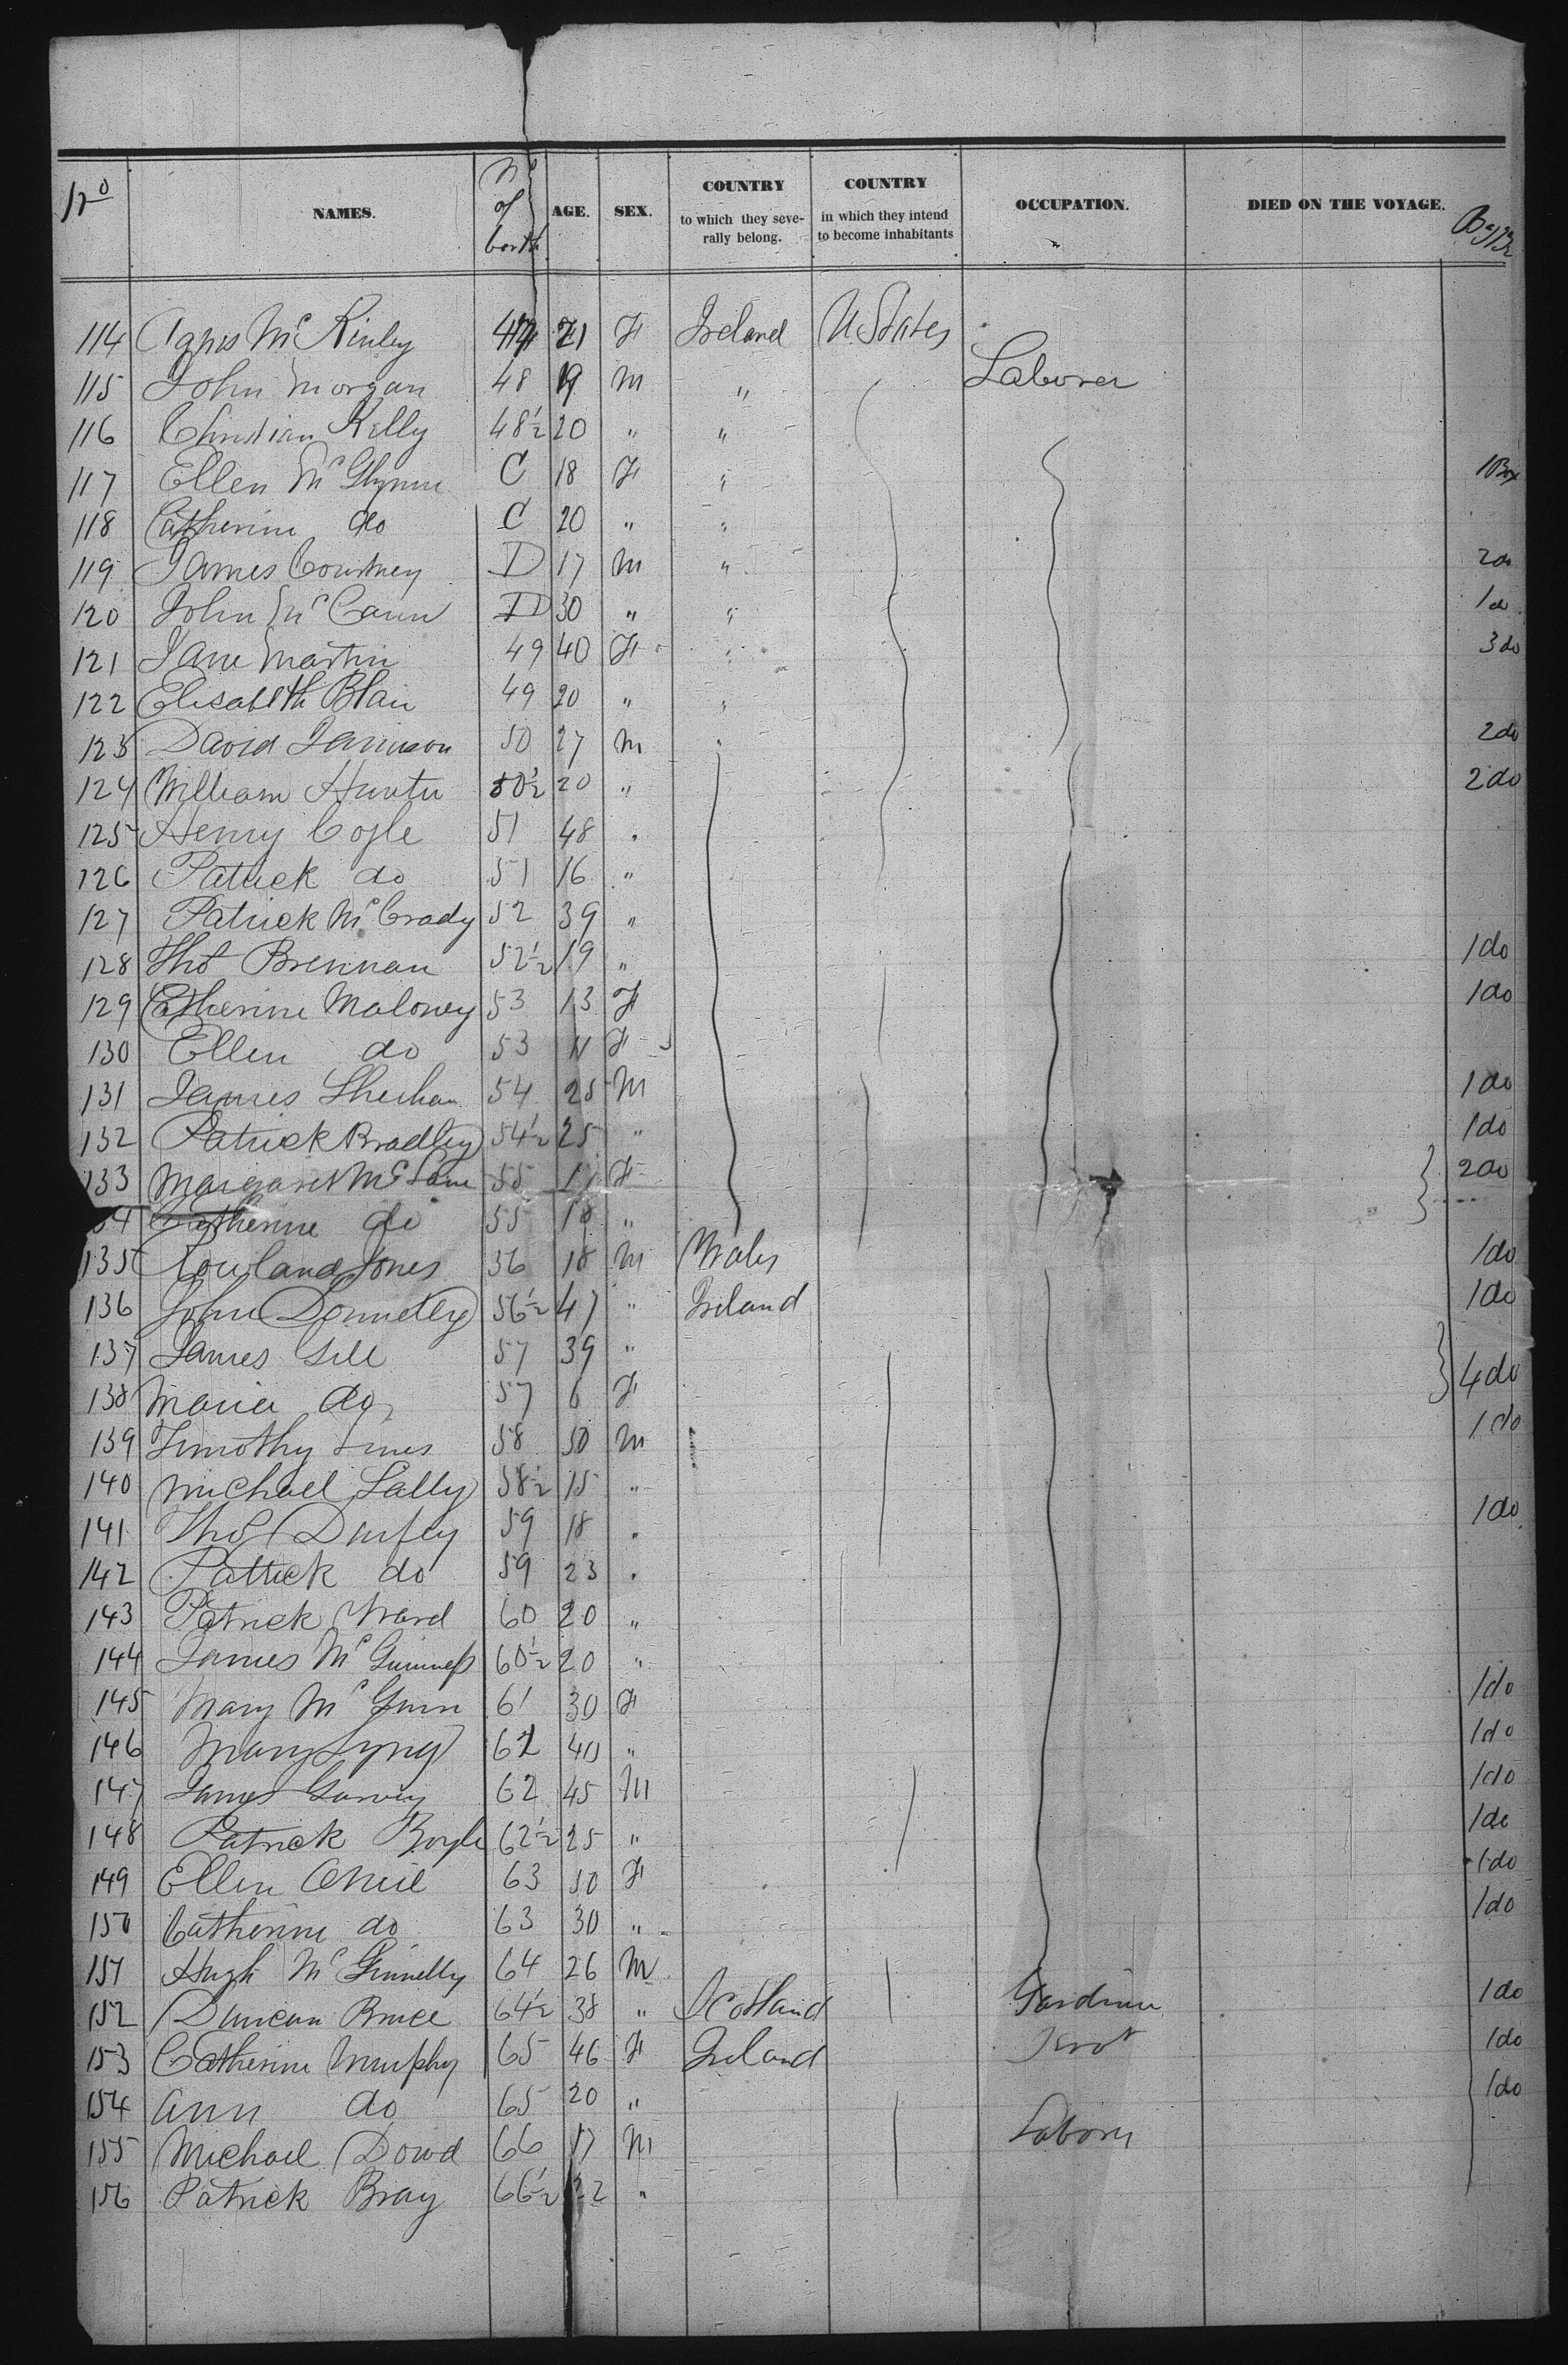 No
NAMES.
No of berth
AGE.
SEX.
COUNTRY
to which they seve-
rally belong.
COUNTRY
in which they intend
to become inhabitants
OCCUPATION.
DIED ON THE VOYAGE.
114 Agnes McKinley 21 F Ireland U States
115 John Morgan 48 19 M " Laborer
116 Christian Kelly 48½ 20 " "
117 Ellen McGlynn C 18 F " 1 Box
118 Catherine do C 20 " "
119 James Courtney D 17 M " 2 do
120 John McCann D 30 " " 1 do
121 Jane Martin 49 40 F " 3 do
122 Elisabeth Blair 49 20 " "
123 David Jamieson 50 27 M " 2 do
124 William Hunter 50½ 20 " 2 do
125 Henry Coyle 51 48 "
126 Patrick do 51 16 "
127 Patrick McGrady 52 39 "
128 Thos Brennan 52½ 19 " 1 do
129 Catherine Maloney 53 13 F 1 do
130 Ellen do 53 11 F
131 James Sheehan 54 25 M 1 do
132 Patrick Bradley 54½ 25 " 1 do
133 Margaret 55 F 2 do
134 Catherine do 55 18 "
135 Rowland Jones 56 18 M Wales 1 do
136 John Donnelly 56½ 47 " Ireland 1 do
137 James Gill 57 39 " 4 do
138 Maria do 57 6 F
139 Timothy 58 50 M 1 do
140 Michael Lally 58½ 15 "
141 Thos Durfey 59 18 " 1 do
142 Patrick do 59 23 "
143 Patrick Ward 60 20 "
144 James McGuinness 60½ 20 "
145 Mary McGinn 61 30 F 1 do
146 Mary Lyng 62 40 " 1 do
147 James Garvey 62 45 M 1 do
148 Patrick Boyle 62½ 25 " 1 do
149 Ellen ONeil 63 50 F 1 do
150 Catherine do 63 30 " 1 do
151 Hugh McGinnelly 64 26 M
152 Duncan Bruce 64½ 38 " Scotland Gardiner 1 do
153 Catherine Murphy 65 46 F Ireland Servt 1 do
154 Ann do 65 20 " 1 do
155 Michael Dowd 66 17 M Laborer
156 Patrick Bray 66½ 22 "